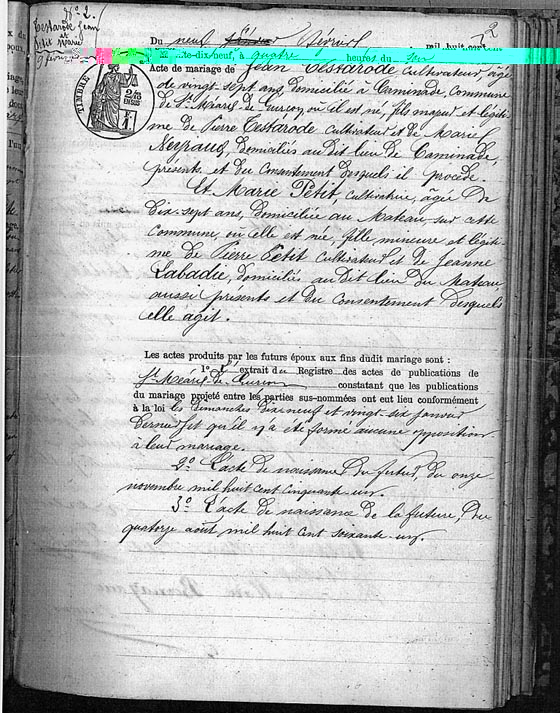 N° 2.
Testarode Jean
et
Petit Marie
9 février
2
Du neuf Février mil huit cent
te-dix-neuf, à quatre heures du soir
TIMBRE
Acte de mariage de Jean Testarode cultivateur, âgé
de vingt-sept ans, domicilié à Caminade, commune
de St Méard-de-Gurçon où il est né, fils majeur et légiti-
me de Pierre Testarode cultivateur et de Marie
Neyraud, domiciliés au dit lieu de Caminade,
présents et du consentement desquels il procède.
Et Marie Petit, cultivatrice, âgée de
dix-sept ans, domiciliée au Mateau, sur cette
commune, où elle est née, fille mineure et légiti-
me de Pierre Petit cultivateur et de Jeanne
Labadie, domiciliés au dit lieu du Mateau,
aussi présents et du consentement desquels
elle agit.
Les actes produits par les futurs époux aux fins dudit mariage sont :
1° L' extrait du Registre des actes de publications de
St Méard-de-Gurçon constatant que les publications
du mariage projeté entre les parties sus-nommées ont eu lieu conformément
à la loi les dimanches dix-neuf et vingt-six janvier
dernier et qu'il n'y a été formé aucune opposition
à leur mariage.
2° L'acte de naissance du futur, du onze
novembre mil huit cent cinquante-un.
3° L'acte de naissance de la future, du
quatorze août mil huit cent soixante-un.